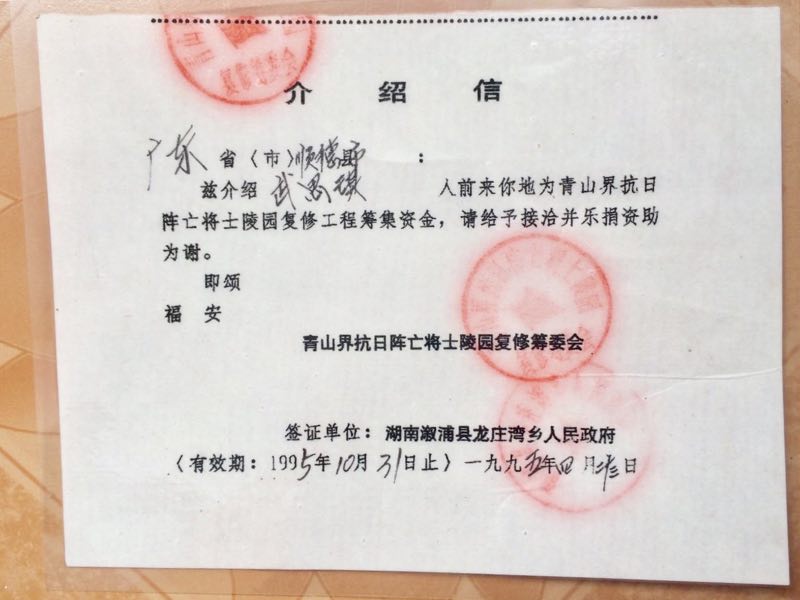 介绍信
广东省（市）顺德县市：
兹介绍武思琪人前来你地为青山界抗日
阵亡将士陵园复修工程筹集资金，请给予接洽并乐捐资助
为谢。
即颂
福安
青山界抗日阵亡将士陵园复修筹委会
签证单位：湖南溆浦县龙庄湾乡人民政府
（有效期：1995年10月31日止）一九九五年四月